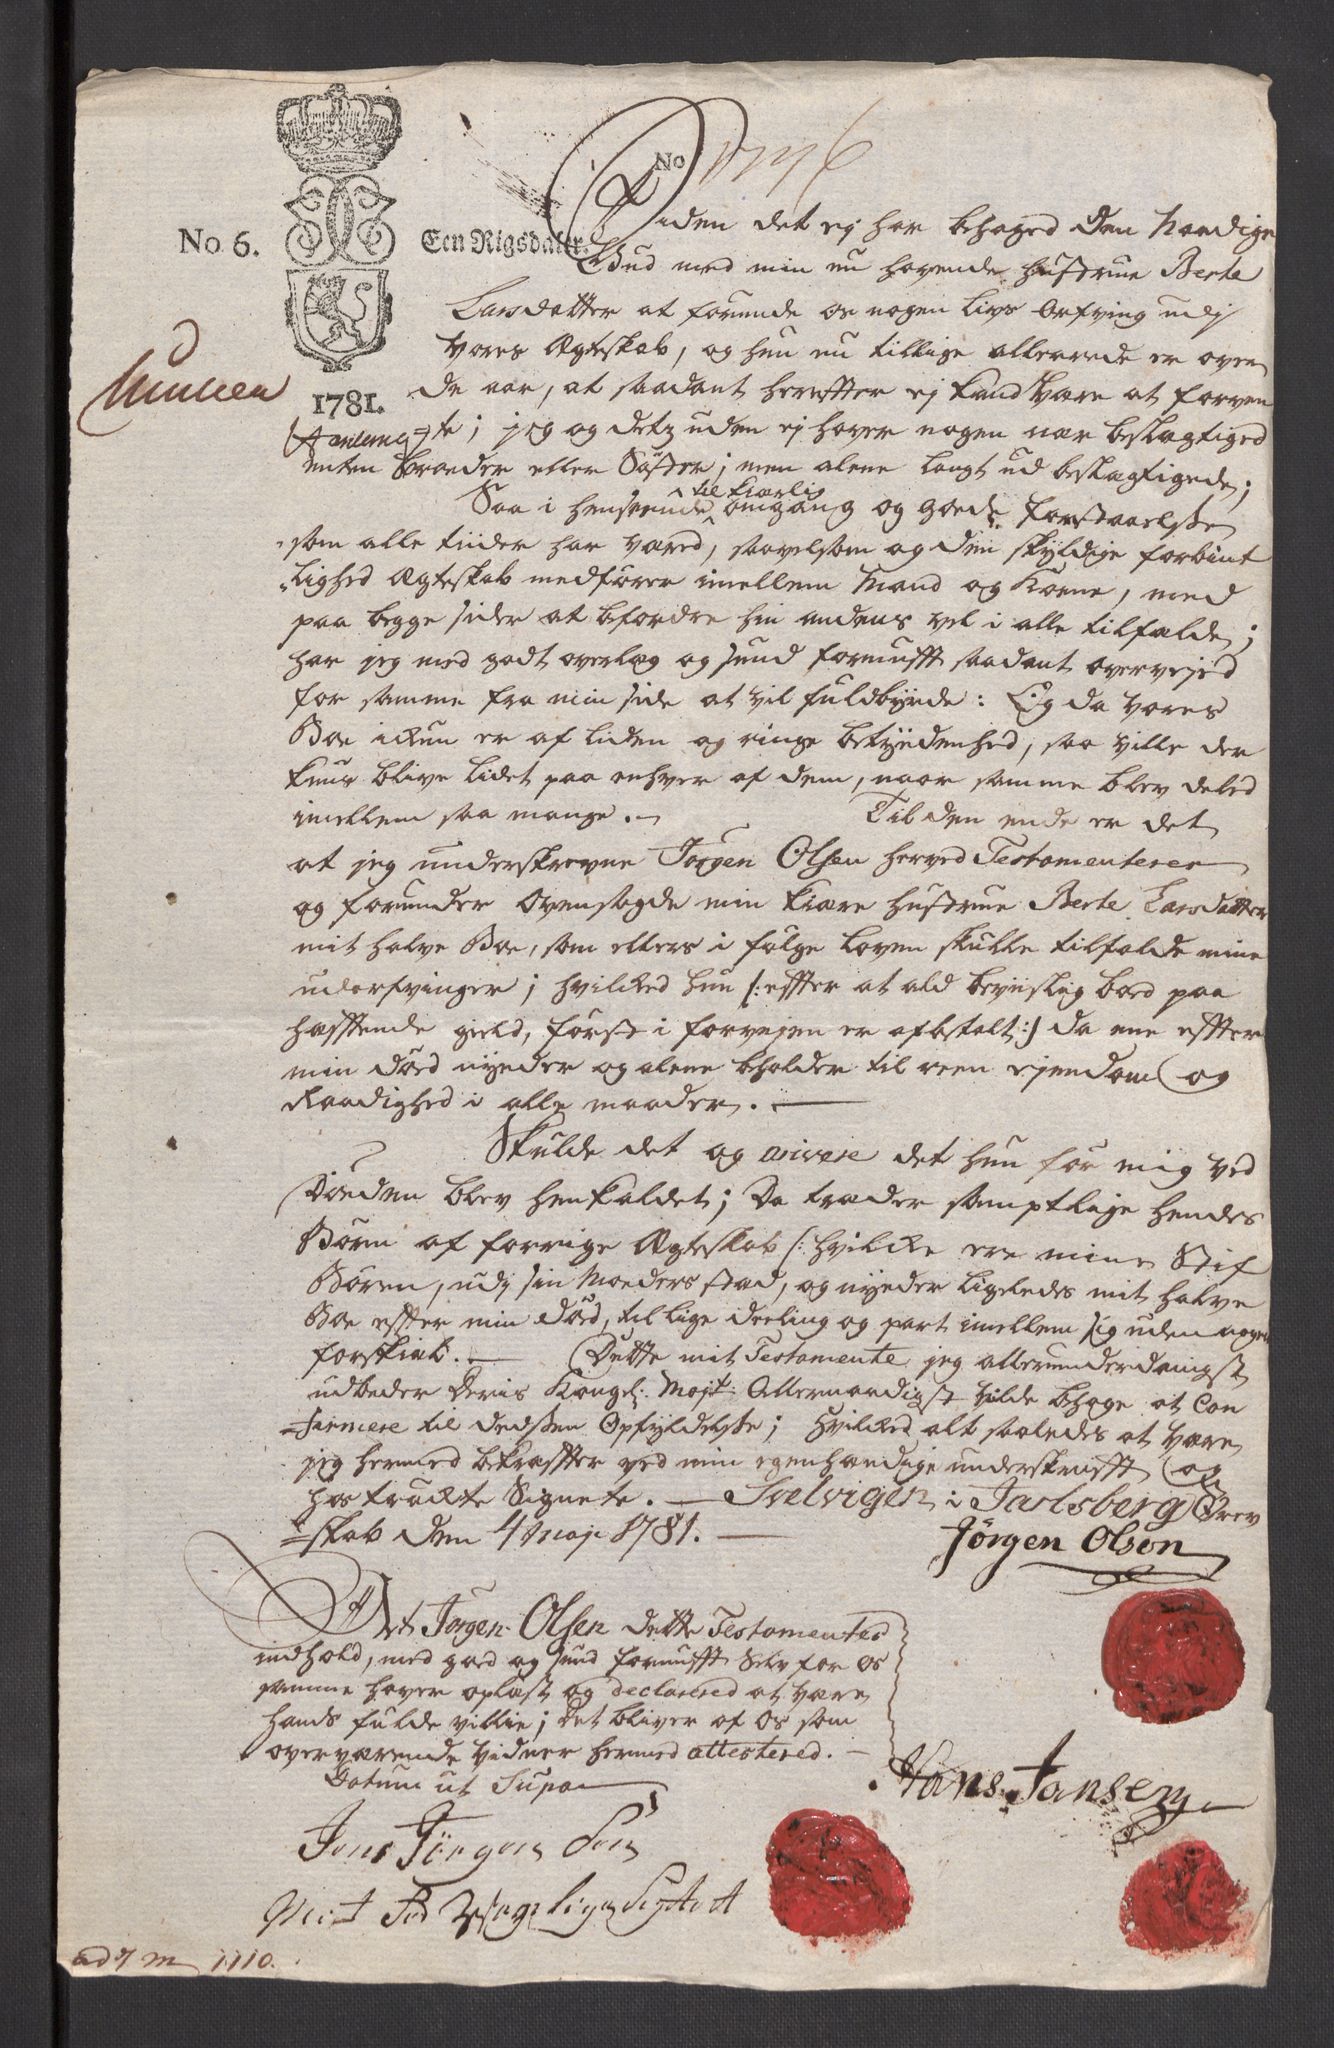 No 6.
Een Rigsdaler.
No
1781.
Siden det ej har behaged den Naadige
Gud med min nu havende Hustrue Berte
Larsdatter at forunde os nogen Livs Arfving udj
vores Ægteskab, og hun nu tillige allerrede er oven
de aar, at saadant herefter ej kand være at forven
te; jeg og desuden ej haver nogen nær beslægtiged
enten Broeder eller Søster; men alene langt ud beslægtigede;
Saa i henseende til kierlig omgang og goede forstaaelsse
som alle tiider har væred, saavelsom og den skyldige forbint
lighed Ægteskab medfører imellem Mand og Kone, med
paa begge sider at befordre hin andens vel i alle tilfælde;
har jeg med godt overlæg og sund fornufft saadant overvejed
for samme fra min side at vil fuldbyrde: Og da vores
Boe ickun er af liden og ringe betydenhed, saa ville der
kuns blive lidet paa enhver af dem, naar samme blev deled
imellem saa mange. Til den ende er det
at jeg underskrevne Jørgen Olsen herved Testamenterer
og forunder Ovensagde min kiære Hustrue Berte Larsdatter
mit halve Boe, som ellers i følge Loven skulle tilfalde mine
udarfvinger; hvilked hun /: effter at ald beviislig boed paa
hæfftende gield, først i forvejen er afbetalt :/ da ene effter
min død nyder og alene beholder til reen ejendom og
Raadighed i alle maader.
Skulde det og arivere det hun før mig ved
Døeden blev henkaldet; Da træder samptlige hendes
Børn af forrige Ægteskab /: hvilcke ere mine Stif
Børen, udj sin Moeders stæd, og nyder ligeledes mit halve
Boe effter min død, til lige deeling og part imellem sig uden nogen
forskiæl. Dette mit Testamente jeg allerunderdanigst
udbeder Deris Kongel: Mayt: Allernaadigst vilde behage at Con
firmere til dedssen Opfyldelsse; hvilked alt saaledes at være
jeg hermed bekræffter ved min egenhændige underskrifft og
hostrøckte Signete. Svelvigen i Jarlsberg Grev
skab den 4 Maji 1781.
Jörgen Olson
At Jørgen Olsen dette Testamentes
indhold, med goed og sund fornufft Selv for os
samme haver oplæst og declarered at være
hands fulde villie; det bliver af os som
overværende vidner hermed attestered.
Datum ut Supra
Hans Jansen
Jens Jörgen Sen
ad 7 m 1110.